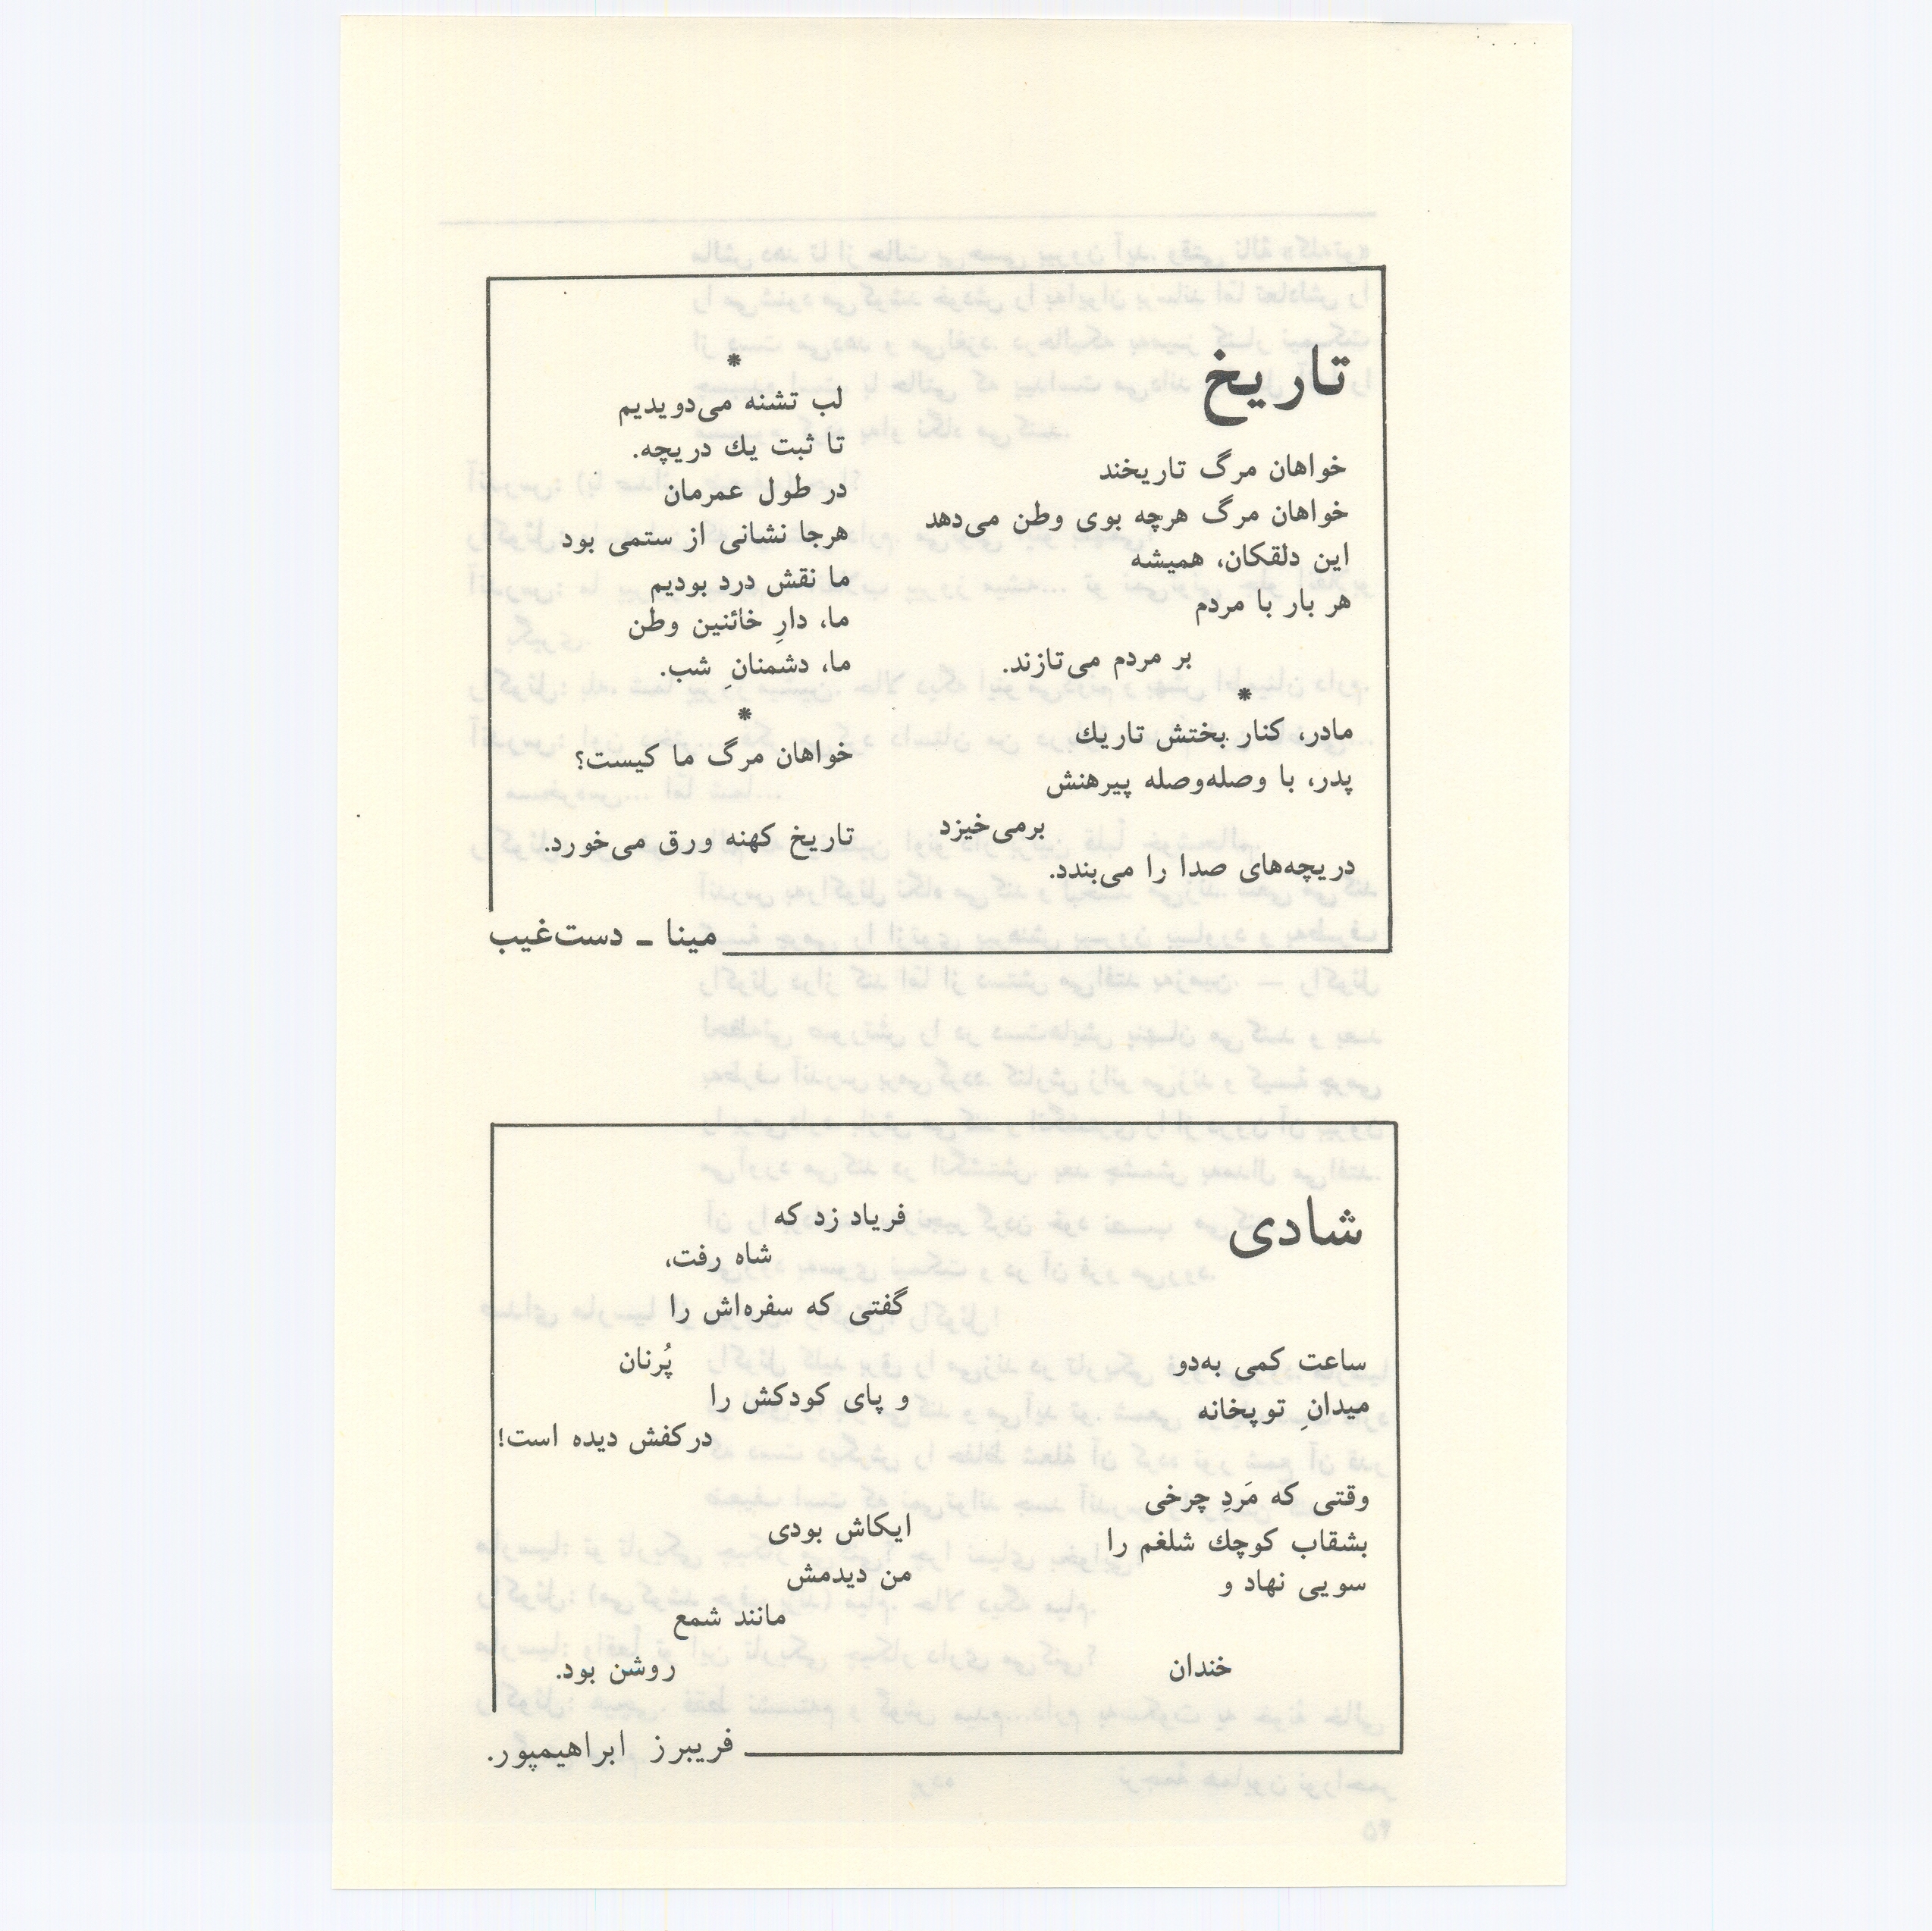 تاریخ
خواهان مرگ تاریخند
خواهان مرگ هرچه بوی وطن می‌دهد
این دلقکان، همیشه
هر بار با مردم
بر مردم می‌تازند.
*
مادر، کنار بختش تاریك
پدر، با وصله‌وصله پیرهنش
برمی‌خیزد
دریچه‌های صدا را می‌بندد.
*
لب تشنه می‌دویدیم
تا ثبت یك دریچه.
در طول عمرمان
هرجا نشانی از ستمی بود
ما نقش درد بودیم
ما، دارِ خائنین وطن
ما، دشمنانِ شب.
*
خواهان مرگ ما کیست؟
تاریخ کهنه ورق می‌خورد.
مینا ـ دست‌غیب
شادی
ساعت کمی به‌دو
میدانِ توپخانه
وقتی که مَردِ چرخی
بشقاب کوچك شلغم را
سویی نهاد و
خندان
فریاد زد که
شاه رفت،
گفتی که سفره‌اش را
پُرنان
و پای کودکش را
درکفش دیده است!
ایکاش بودی
من دیدمش
مانند شمع
روشن بود.
فریبرز ابراهیمپور.